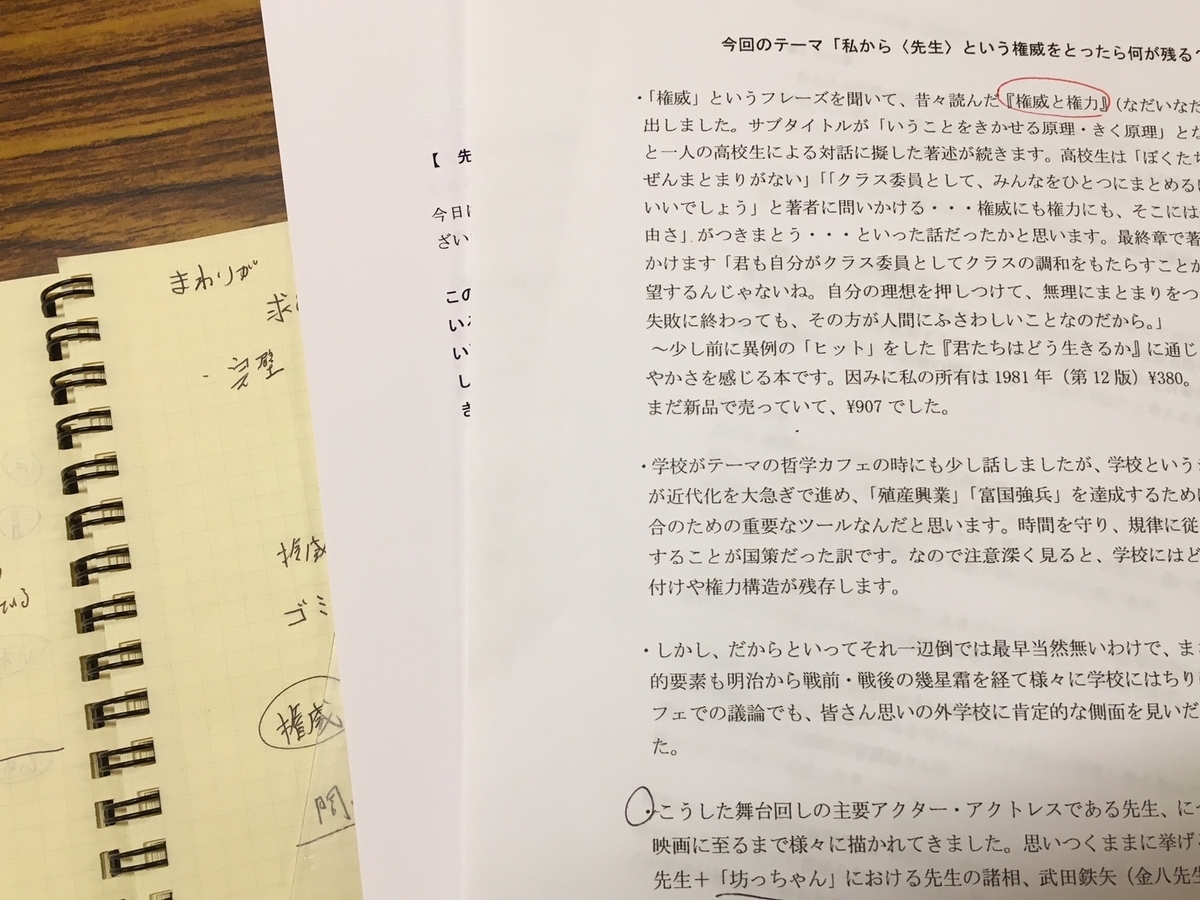 まわりが
求
・完璧
権威
ゴミ
権威
問
ている
【 先
今日は
ざい
この
い
し
今回のテーマ「私から〈先生〉という権威をとったら何が残る
・「権威」というフレーズを聞いて、昔々読んだ『権威と権力』（なだいなだ
出しました。サブタイトルが「いうことをきかせる原理・きく原理」とな
と一人の高校生による対話に擬した著述が続きます。高校生は「ぼくたち
ぜんまとまりがない」「「クラス委員として、みんなをひとつにまとめるに
いいでしょう」と著者に問いかける・・・権威にも権力にも、そこには
由さ」がつきまとう・・・といった話だったかと思います。最終章で著
かけます「君も自分がクラス委員としてクラスの調和をもたらすことが
望するんじゃないね。自分の理想を押しつけて、無理にまとまりをつ
失敗に終わっても、その方が人間にふさわしいことなのだから。」
～少し前に異例の「ヒット」をした『君たちはどう生きるか』に通じ
やかさを感じる本です。因みに私の所有は 1981 年（第 12 版）¥380。
まだ新品で売っていて、¥907 でした。
・学校がテーマの哲学カフェの時にも少し話しましたが、学校という
が近代化を大急ぎで進め、「殖産興業」「富国強兵」を達成するために
合のための重要なツールなんだと思います。時間を守り、規律に従
することが国策だった訳です。なので注意深く見ると、学校にはど
付けや権力構造が残存します。
・しかし、だからといってそれ一辺倒では最早当然無いわけで、ま
的要素も明治から戦前・戦後の幾星霜を経て様々に学校にはちり
フェでの議論でも、皆さん思いの外学校に肯定的な側面を見いだ
た。
・こうした舞台回しの主要アクター・アクトレスである先生、につ
映画に至るまで様々に描かれてきました。思いつくままに挙げ
先生＋「坊っちゃん」における先生の諸相、武田鉄矢（金八先生